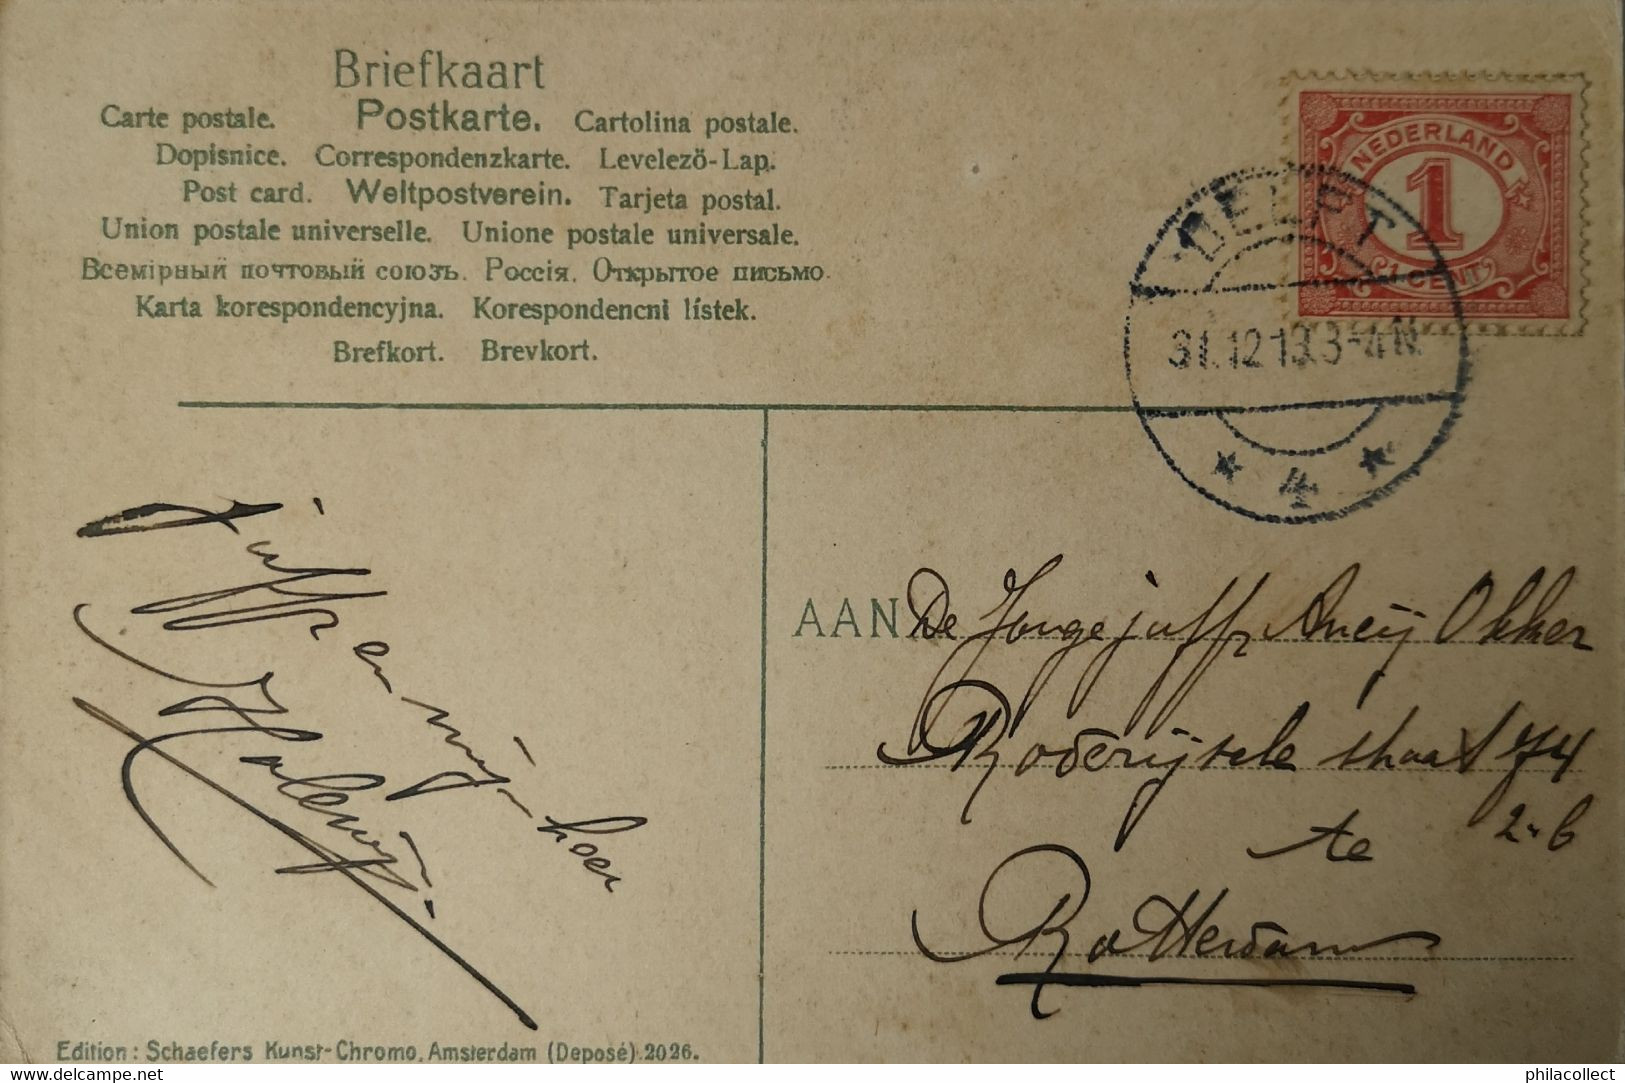 Briefkaart
Carte postale. Postkarte. Cartolina postale.
Dopisnice. Correspondenzkarte. Levelezö-Lap.
Post card. Weltpostverein. Tarjeta postal.
Union postale universelle. Unione postale universale.
Всемірный почтовый союзъ. Россія. Открытое письмо.
Karta korespondencyjna. Korespondencni lístek.
Brefkort. Brevkort.
NEDERLAND
1
1 CENT
DELFT
31.12.13.3-4N
* 4 *
juffr en mijnheer
AAN De Jonge juffr Okker
straat 74
te
Rotterdam
Edition: Schaefers Kunst-Chromo, Amsterdam (Deposé) 2026.
delcampe.net
philacollect